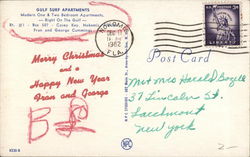 GULF SURF APARTMENTS
Modern One & Two Bedroom Apartments,
— Right On The Gulf —
Rt. #1 - Box 507 - Casey Key, Nokomis,
Fran and George Cummings
NOKOMIS
DEC 11
1962
FLA.
LIBERTY
Merry Christmas
and a
Happy New Year
Fran and George
Post Card
Mr & Mrs Harold Boyle
37 Lincoln St.
Larchmont
New York